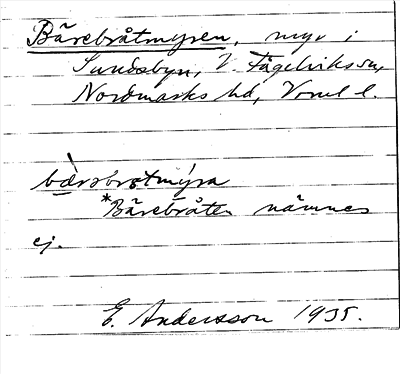 Bärebråtmyren, myr i
Sundsbyn, V. Fågelviks sn,
Nordmarks hd, Vrml l.
bæ̀rəbrɷtmýra
*Bärebråten nämnes
ej.
E. Andersson 1935.